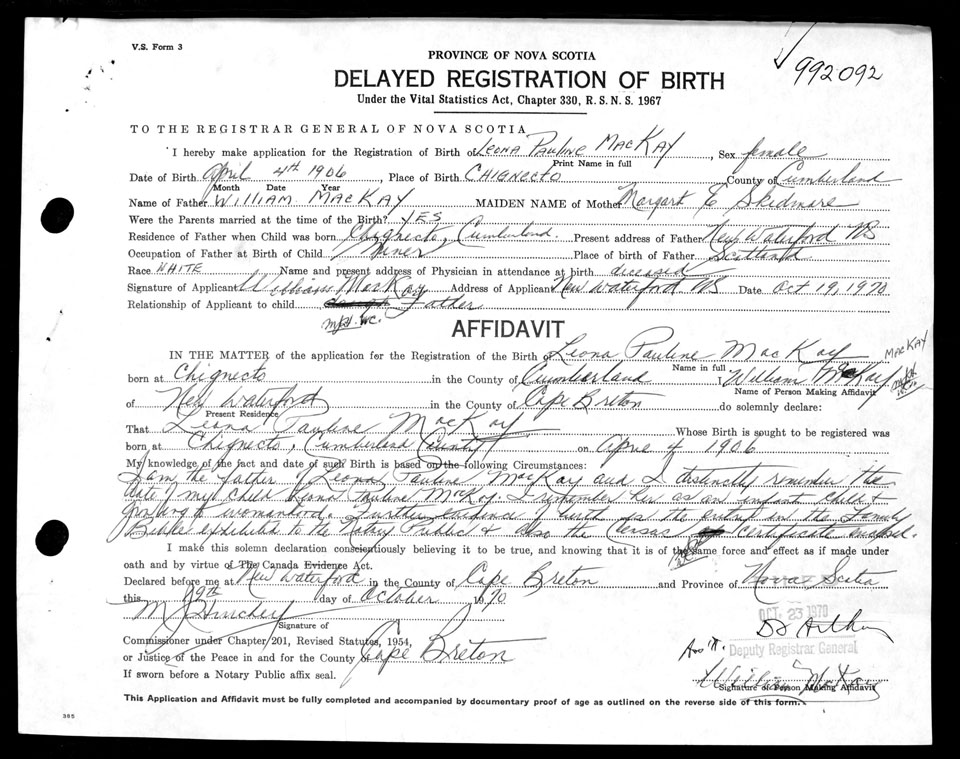 V.S. Form 3
992092
PROVINCE OF NOVA SCOTIA
DELAYED REGISTRATION OF BIRTH
Under the Vital Statistics Act, Chapter 330, R.S.N.S. 1967
TO THE REGISTRAR GENERAL OF NOVA SCOTIA
I hereby make application for the Registration of Birth of Leona Pauline MacKay, Sex female
Print Name in full
Date of Birth April 4th 1906, Place of Birth CHIGNECTO County of Cumberland
Month Date Year
Name of Father William MacKay MAIDEN NAME of Mother Margart E Skidmore
Were the Parents married at the time of the Birth? YES
Residence of Father when Child was born Chignecto, Cumberland. Present address of Father New Waterford NS
Occupation of Father at Birth of Child Miner Place of birth of Father Scotland
Race WHITE Name and present address of Physician in attendance at birth deceased
Signature of Applicant William MacKay Address of Applicant New Waterford NS Date Oct 19, 1970
Relationship of Applicant to child Father
AFFIDAVIT
IN THE MATTER of the application for the Registration of the Birth of Leona Pauline MacKay
MACKAY
Name in full
born at Chignecto in the County of Cumberland William McKay
Name of Person Making Affidavit
of New Waterford in the County of Cape Breton do solemnly declare:
Present Residence
That Leona Pauline MacKay Whose Birth is sought to be registered was
born at Chignecto, Cumberland County on April 4 1906
My knowledge of the fact and date of such Birth is based on the following Circumstances:
I am the father of Leona Pauline MacKay and I distinctly remember the
date of my child Leona Pauline McKay. I remember her as an infant child &
growing to womanhood. Further evidence of birth is the entry in the Family
Bible exhibited to the Notary Public & also the Census certificate
I make this solemn declaration conscientiously believing it to be true, and knowing that it is of the same force and effect as if made under
oath and by virtue of The Canada Evidence Act.
Declared before me at New Waterford in the County of Cape Breton and Province of Nova Scotia
this 19th day of October 1970
OCT 23 1970
M J Hinchey
Signature of
Commissioner under Chapter 201, Revised Statutes, 1954,
Ass't. Deputy Registrar General
or Justice of the Peace in and for the County of Cape Breton
William McKay
If sworn before a Notary Public affix seal.
Signature of Person Making Affidavit
This Application and Affidavit must be fully completed and accompanied by documentary proof of age as outlined on the reverse side of this form.
385